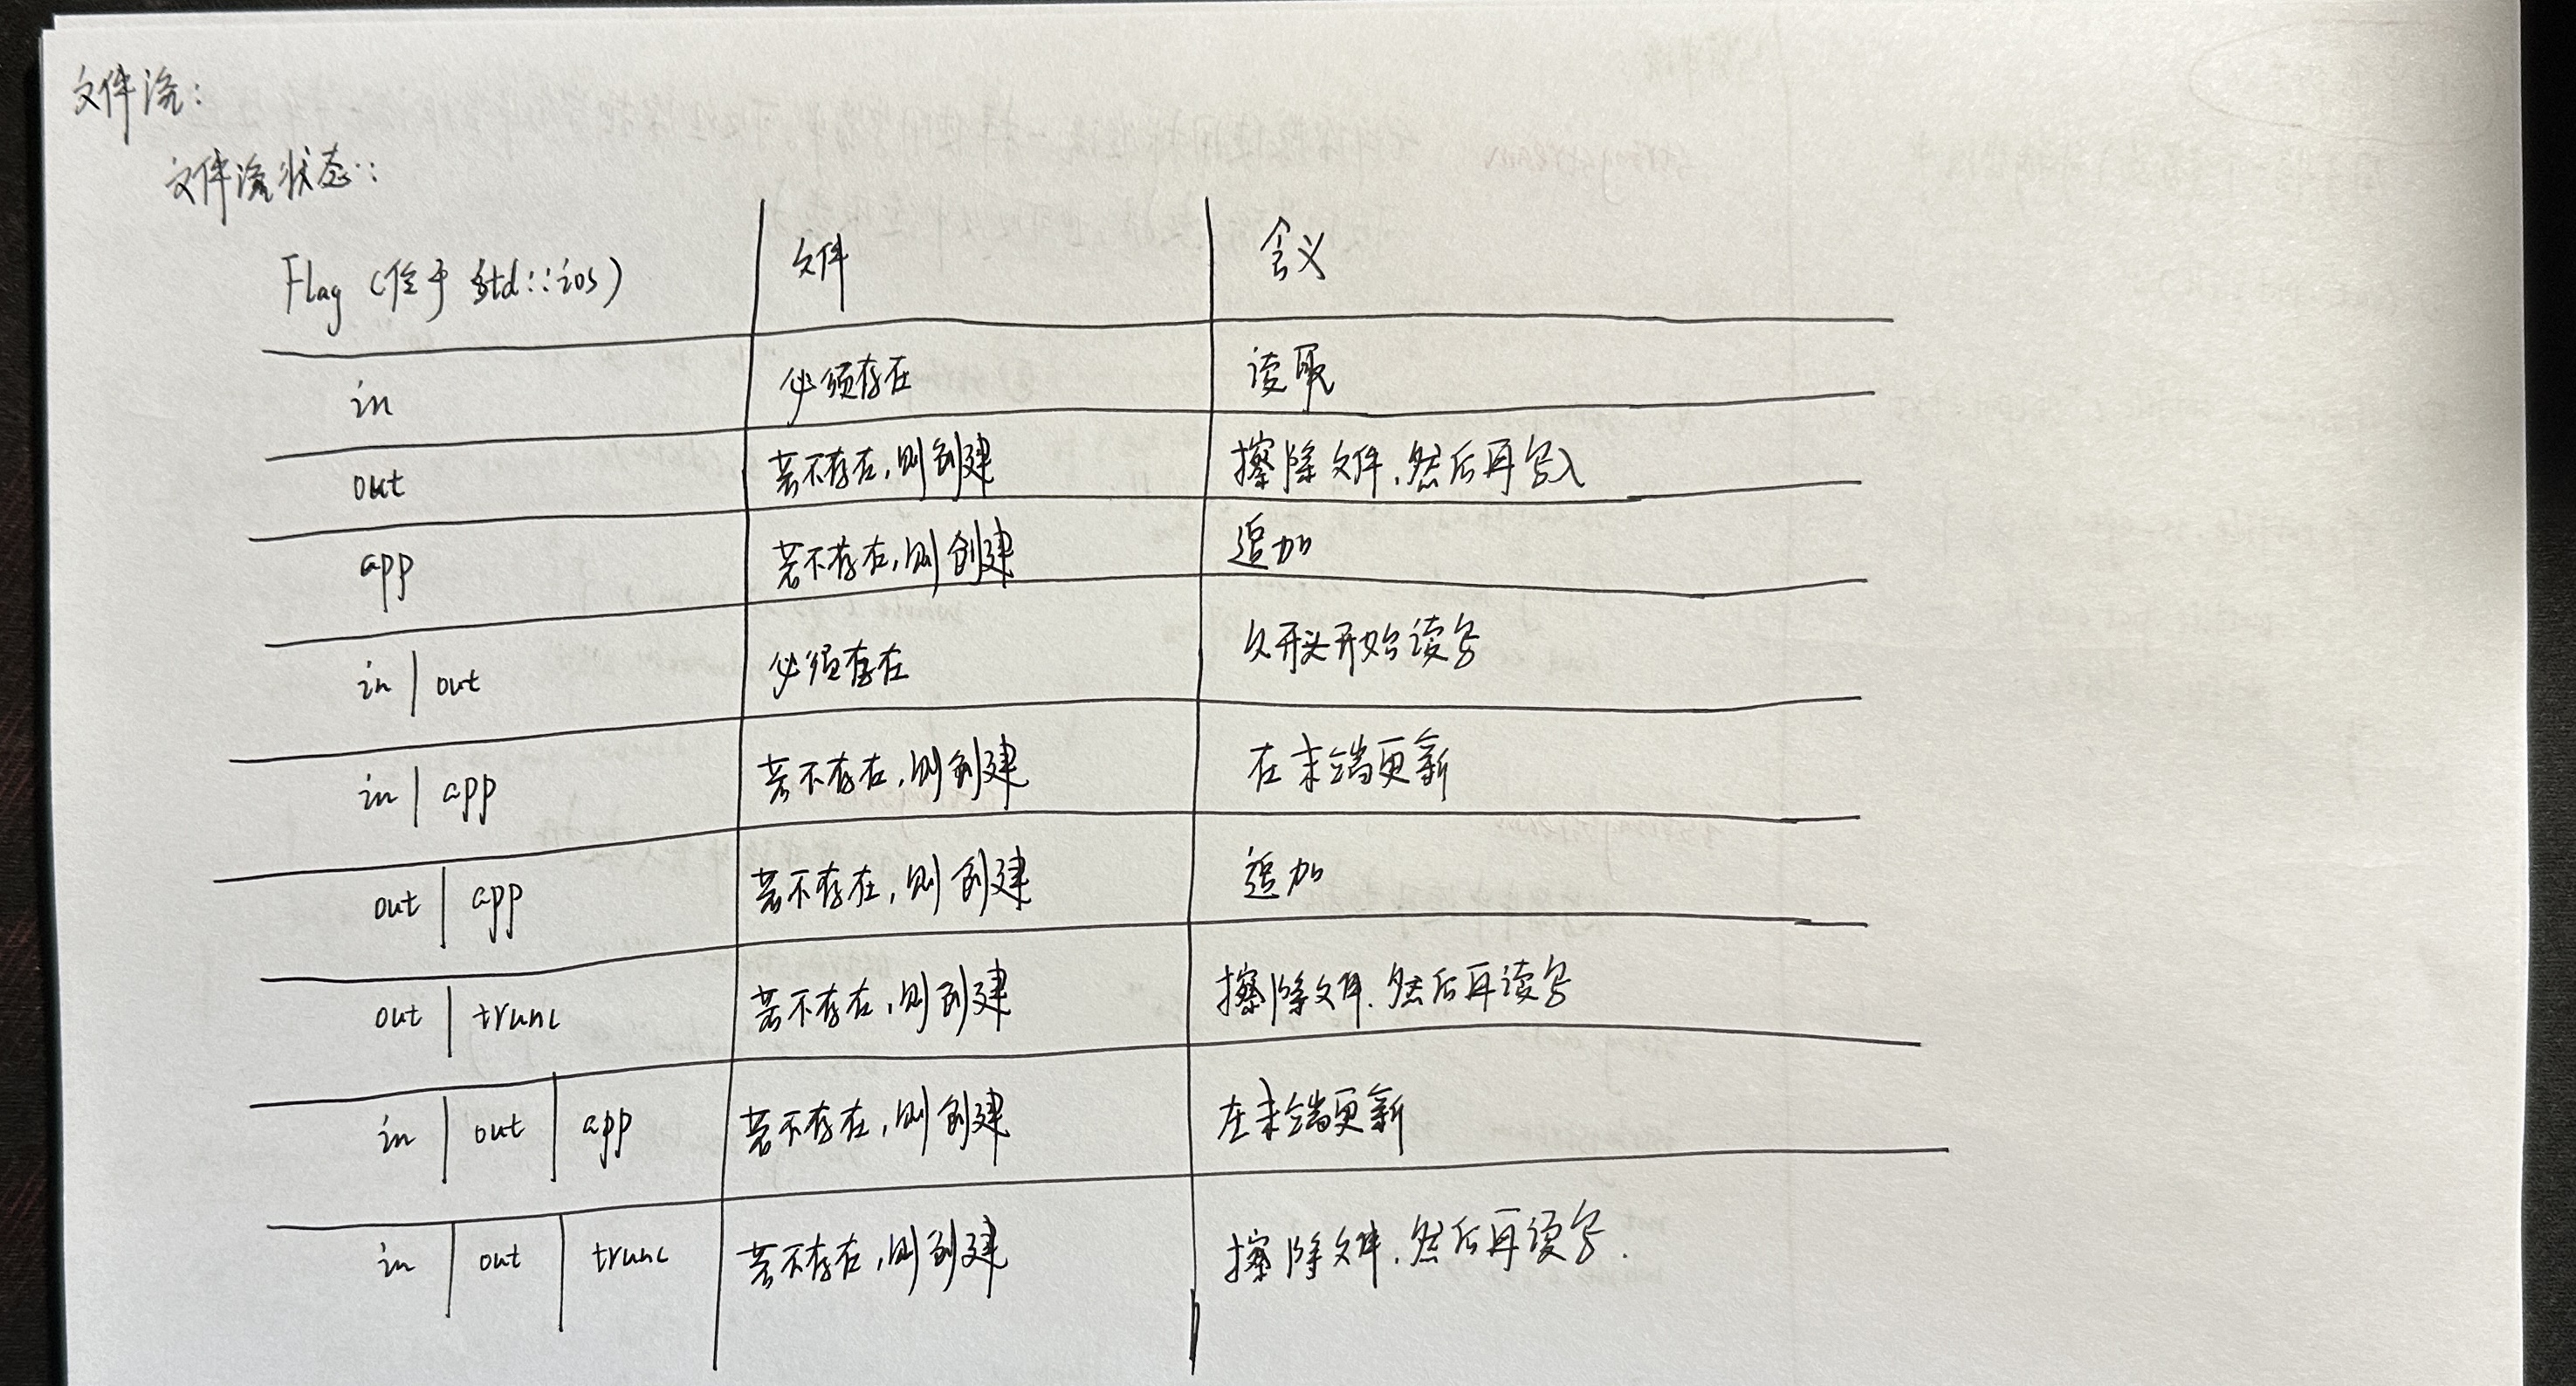 文件流：
文件流状态：
Flag (位于 std::ios) 文件 含义
in 必须存在 读取
out 若不存在，则创建 擦除文件，然后再写入
app 若不存在，则创建 追加
in | out 必须存在 从开头开始读写
in | app 若不存在，则创建 在末端更新
out | app 若不存在，则创建 追加
out | trunc 若不存在，则创建 擦除文件，然后再读写
in | out | app 若不存在，则创建 在末端更新
in | out | trunc 若不存在，则创建 擦除文件，然后再读写.